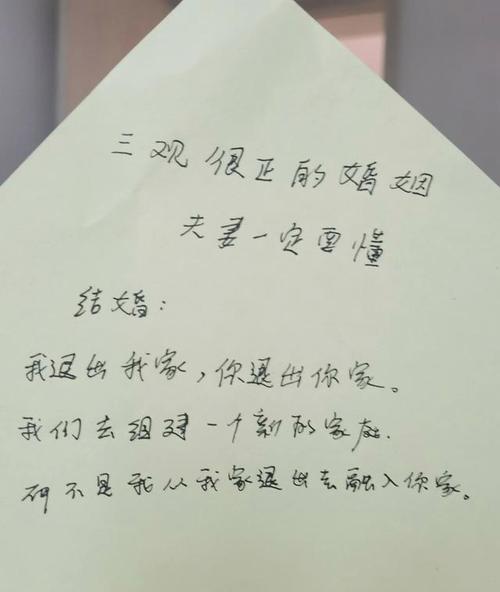 三观很正的婚姻
夫妻一定要懂
结婚：
我退出我家，你退出你家。
我们去组建一个新的家庭.
而不是我从我家退出去融入你家。